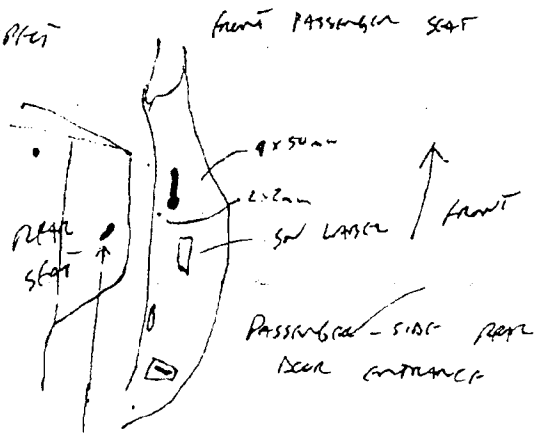 FRONT PASSENGER SEAT
9 x 50 mm
2x2mm
SN LABEL
FRONT
REAR
SEAT
PASSENGER-SIDE REAR
DOOR ENTRANCE